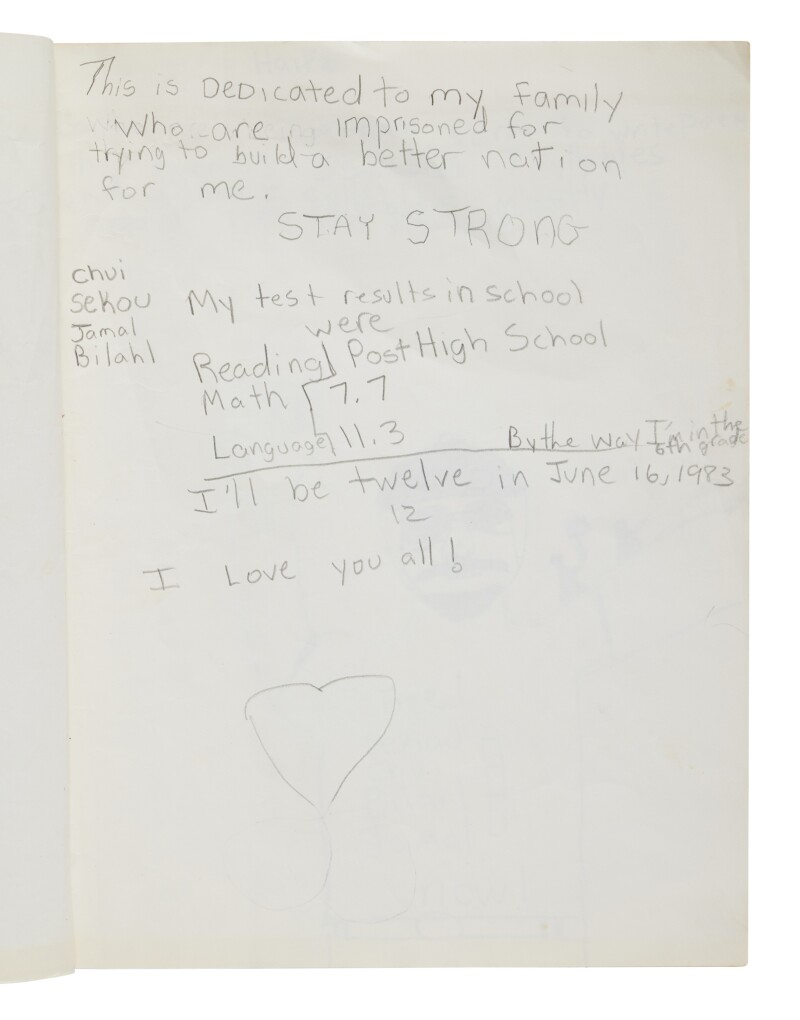 This is DeDicated to my family
who are imprisoned for
trying to build a better nation
for me.
STAY STRONG
chui
Sekou
Jamal
Bilahl
My test results in school
were
Reading Post High School
Math 7.7
Language 11.3
By the way I'm in the
6th grade
I'll be twelve in June 16, 1983
12
I Love you all!